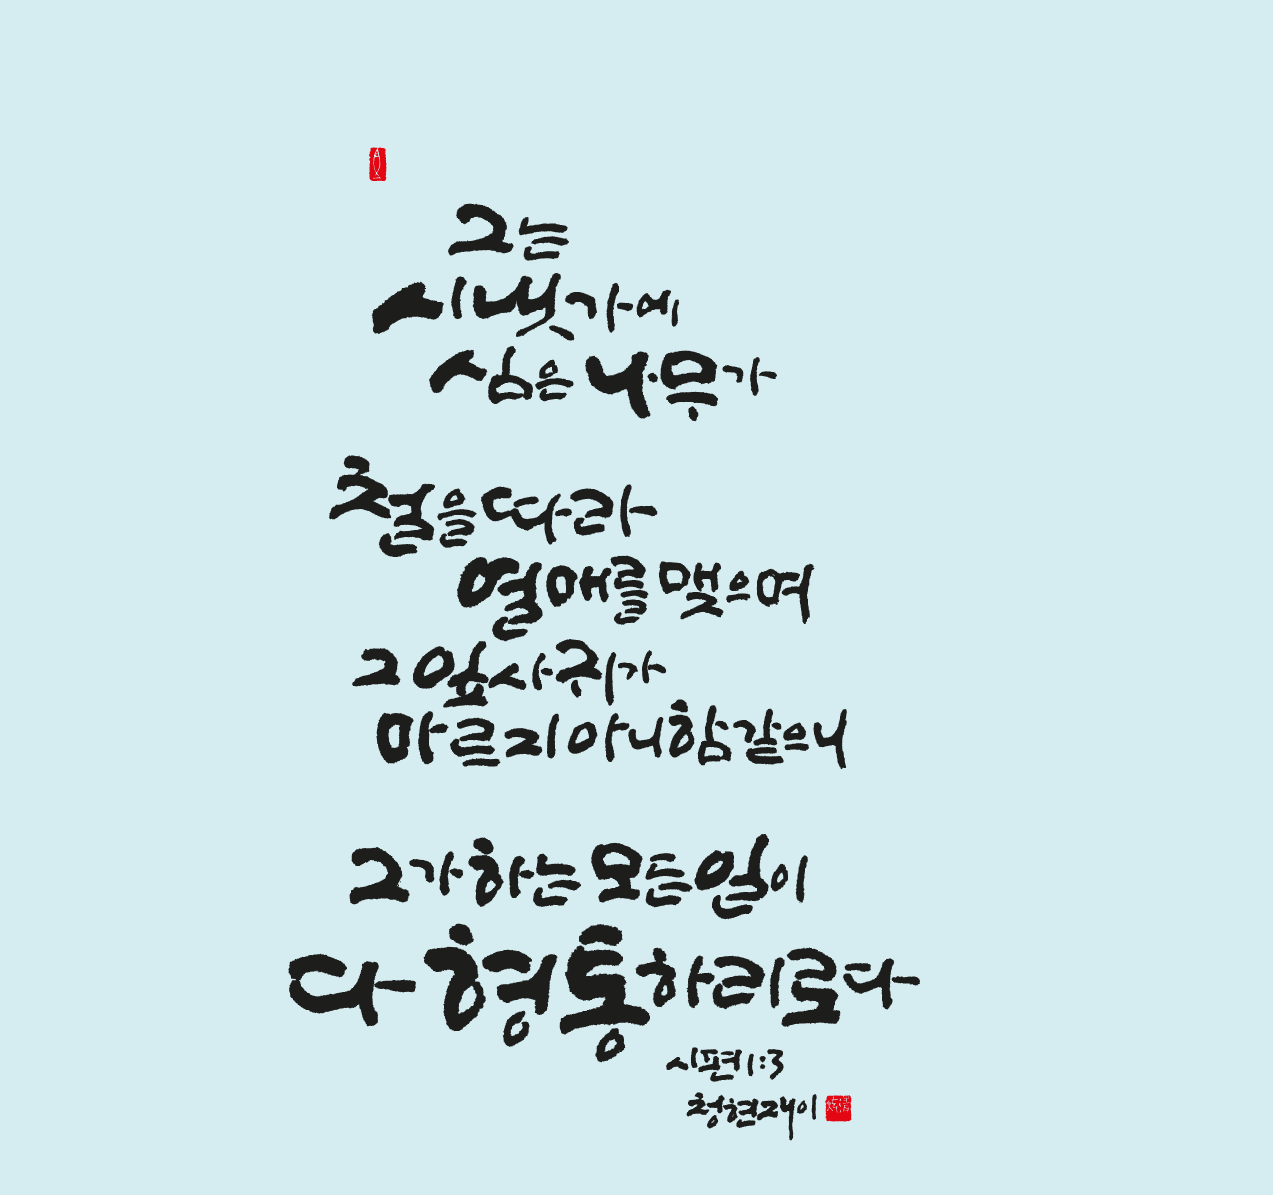 그는
시냇가에
심은 나무가
철을 따라
열매를 맺으며
그 잎사귀가
마르지 아니함 같으니
그가 하는 모든 일이
다 형통하리로다
시편 1:3
청현재이